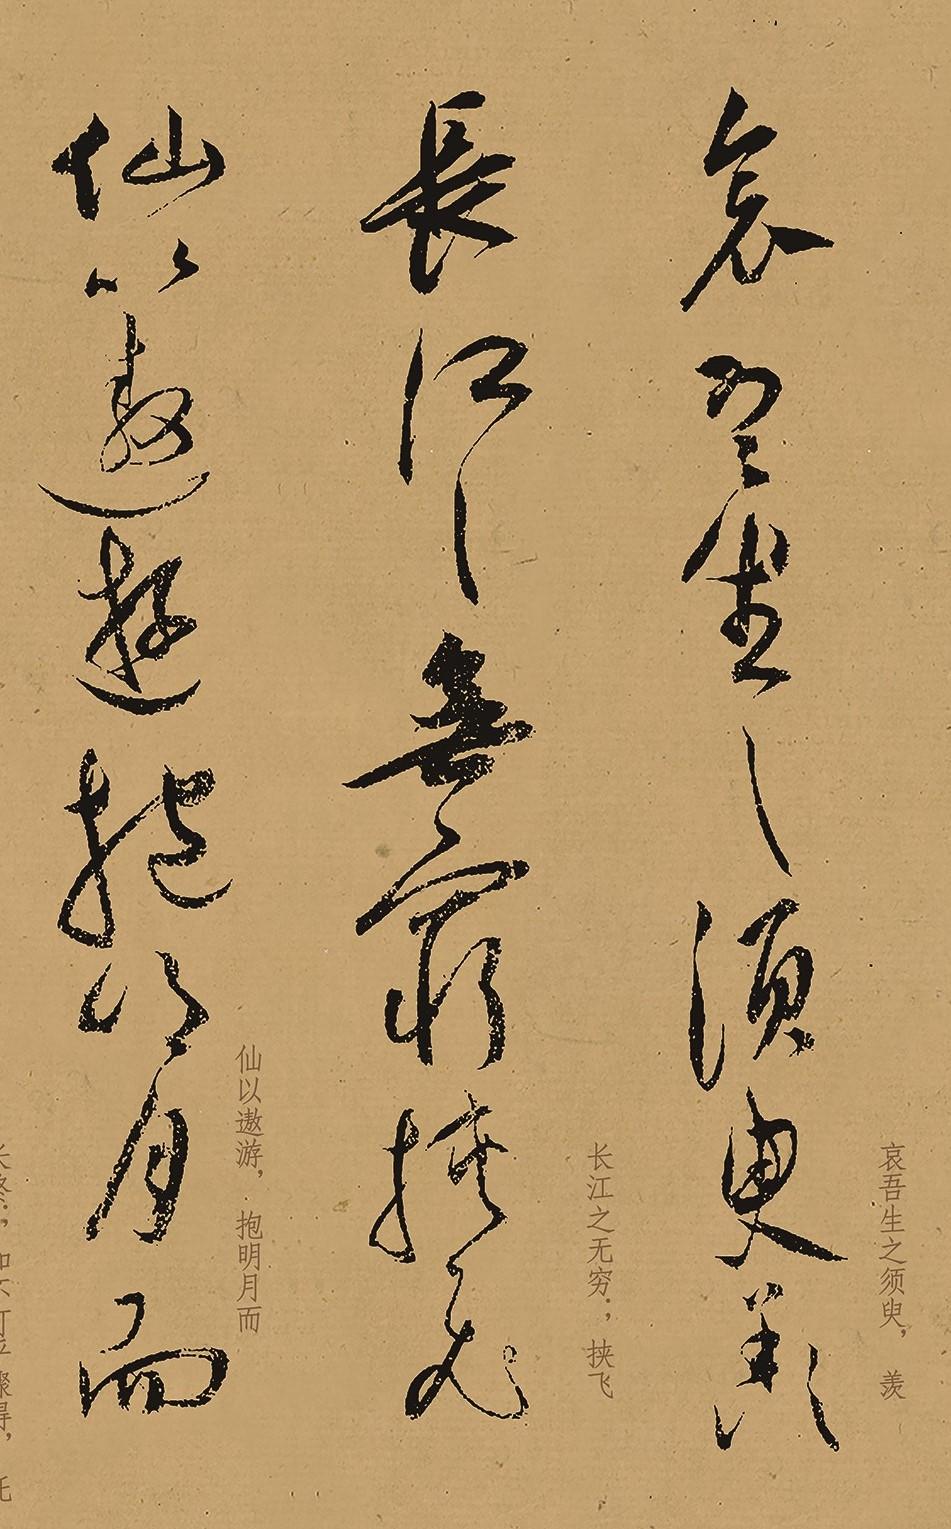 哀吾生之須臾羨
哀吾生之须臾，羡
長江之無窮挟飛
长江之无穷；，挟飞
仙以遨遊抱明月而
仙以遨游，抱明月而